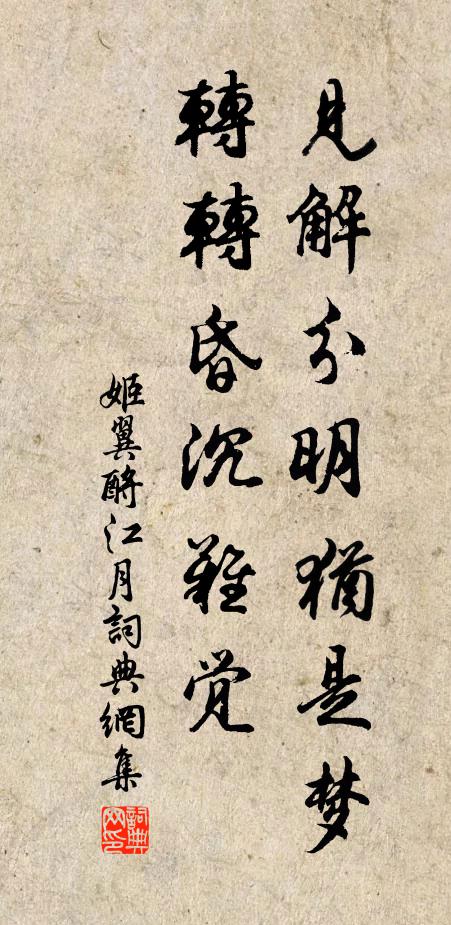 見解分明猶是梦
轉轉昏沉難觉
姬翼酹江月詞典網集
詞典网印